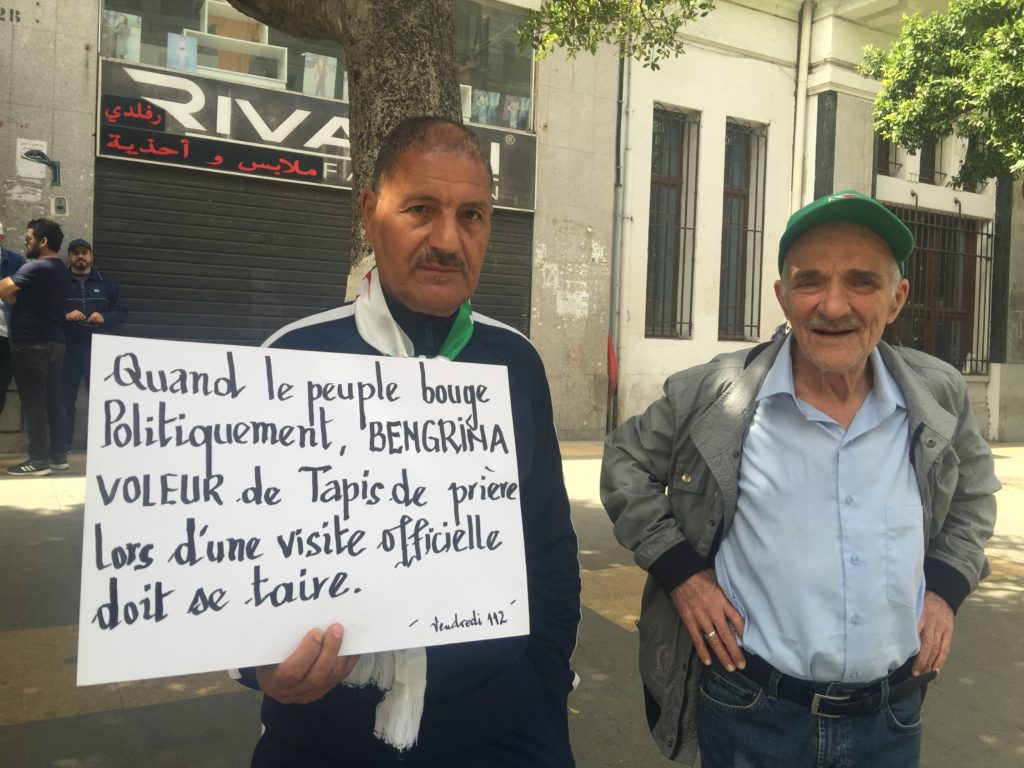 2B
RIVA
رفلدي
ملابس و أحذية
Quand le peuple bouge
Politiquement, BENGRINA
VOLEUR de Tapis de prière
lors d'une visite officielle
doit se taire.
- Vendredi 112 -